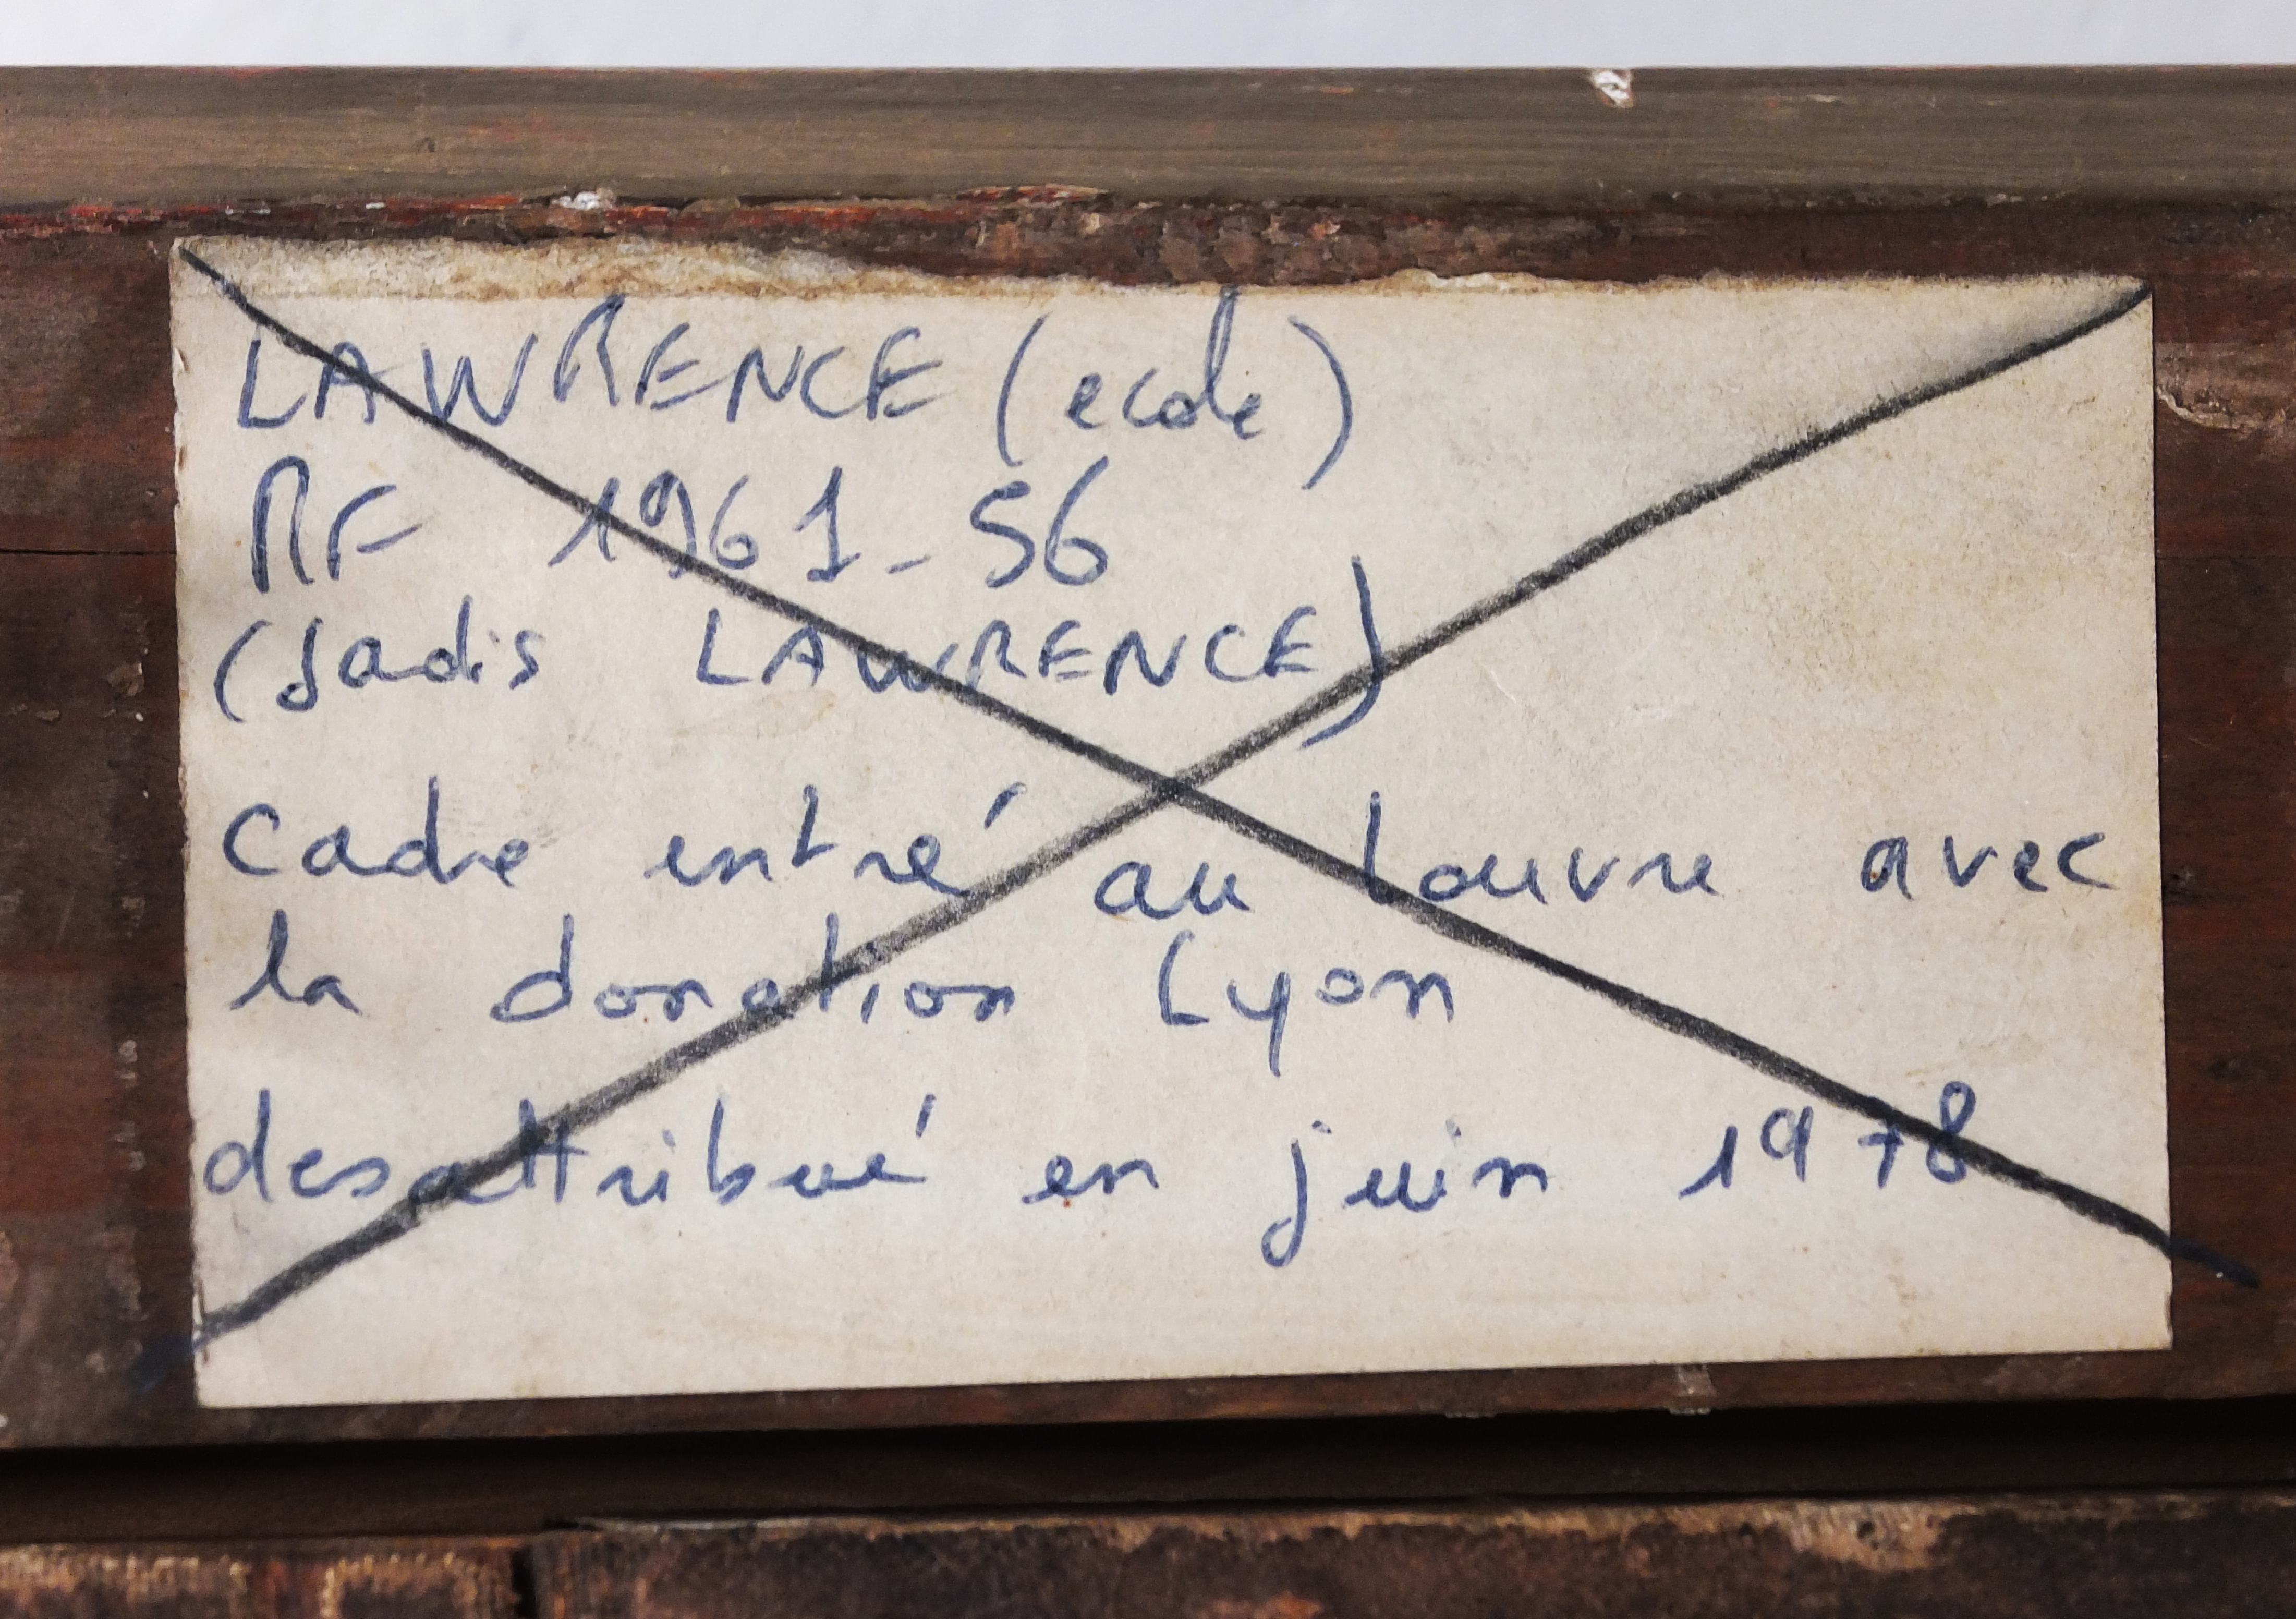 LAWRENCE (ecole)
RF 1961-56
(Jadis LAWRENCE)
Cadre entré au Louvre avec
la donation Lyon
desattribué en juin 1978